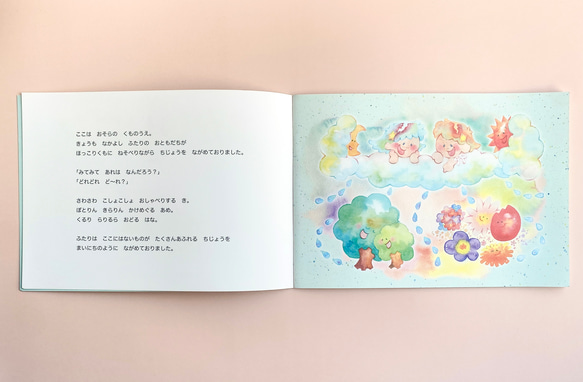 ここは　おそらの　くものうえ。
きょうも　なかよし　ふたりの　おともだちが
ほっこりくもに　ねそべりながら　ちじょうを　ながめておりました。
「みてみて　あれは　なんだろう？」
「どれどれ　ど〜れ？」
さわさわ　こしょこしょ　おしゃべりする　き。
ぽとりん　きらりん　かけめぐる　あめ。
くるり　らりるら　おどる　はな。
ふたりは　ここにはないものが　たくさんあふれる　ちじょうを
まいにちのように　ながめておりました。